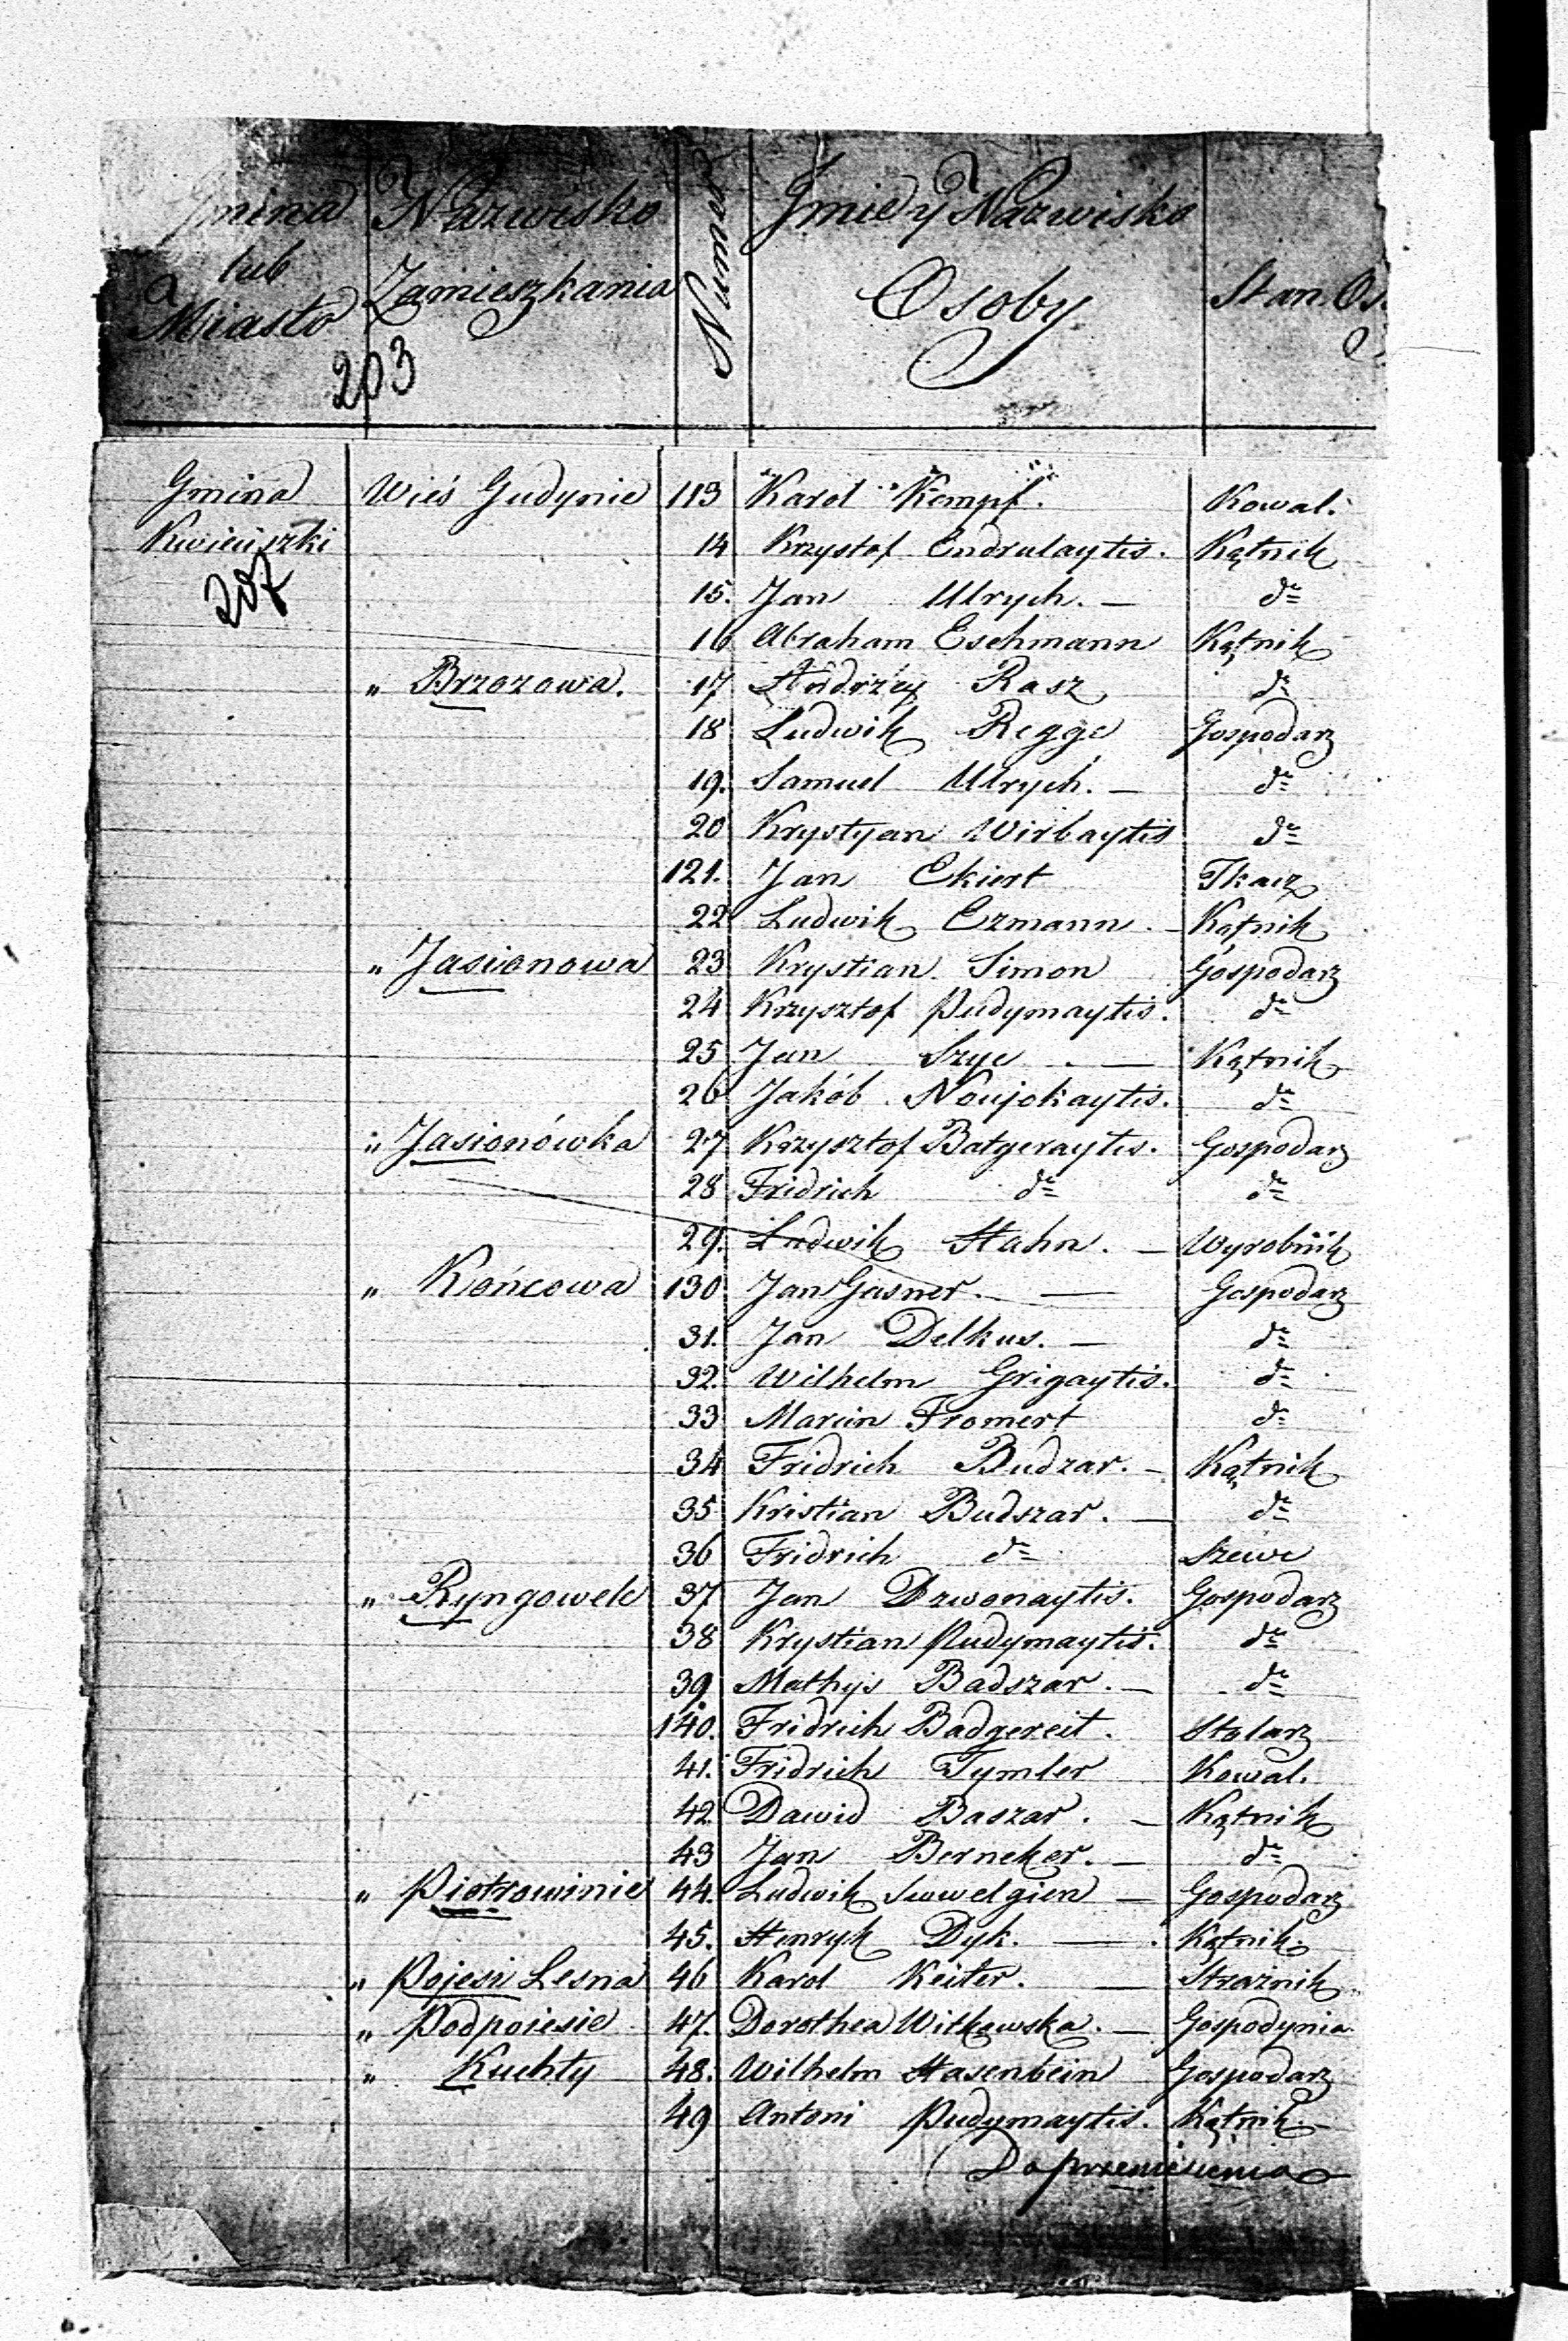 Gmina lub Miasto Nazwisko Zamieszkania Numer Jmie y Nazwisko Osoby Stan Os.
203
Gmina Wieś Gudynie 113 Karol Kempf. Kowal.
Kwieciszki 14 Krzystof Endrulaytis. Kątnik
207 15. Jan Ulrych. — do
16 Abraham Eschmann Kątnik
" Brzozowa. 17 Andrzéy Rasz do
18 Ludwik Regge Gospodarz
19. Samuel Ulrych. — do
20 Krystyan Wirbaytis do
121. Jan Ekiert Tkacz
22 Ludwik Ezmann. — Kątnik
" Jasionowa 23 Krystian Simon Gospodarz
24 Krzysztof Pudymaytis. do
25 Jan Szyc. — Kątnik
26 Jakób Noujokaytis. do
" Jasionówka 27 Krzysztof Batgeraytis. Gospodarz
28 Fridrich do do
29. Ludwik Hahn. — Wyrobnik
" Końcowa 130 Jan Gasner. — Gospodarz
31. Jan Delkus. — do
32. Wilhelm Grigaytis. do
33 Marcin Fromert do
34 Fridrich Budzar. — Kątnik
35 Kristian Budszar. — do
36 Fridrich do Szewc
" Ryngowele 37 Jan Dzwonaytis. Gospodarz
38 Krystian Pudymaytis. do
39. Mathys Badszar. — do
140. Fridrich Badgereit. Stolarz
41. Fridrich Tymler Kowal.
42 Dawid Baszar. — Kątnik
43 Jan Berneker. — do
" Piotrowinie 44. Ludwik Suwelgien — Gospodarz
45. Henryk Dyk. — Kątnik.
" Pojesi Lesna 46 Karol Keiter. — Strażnik
" Podpoiesie 47. Dorothea Witkowska. — Gospodynia
" Kuchty 48. Wilhelm Hasenbein Gospodarz
49 Antoni Pudymaytis. Kątnik.
Do przeniesienia